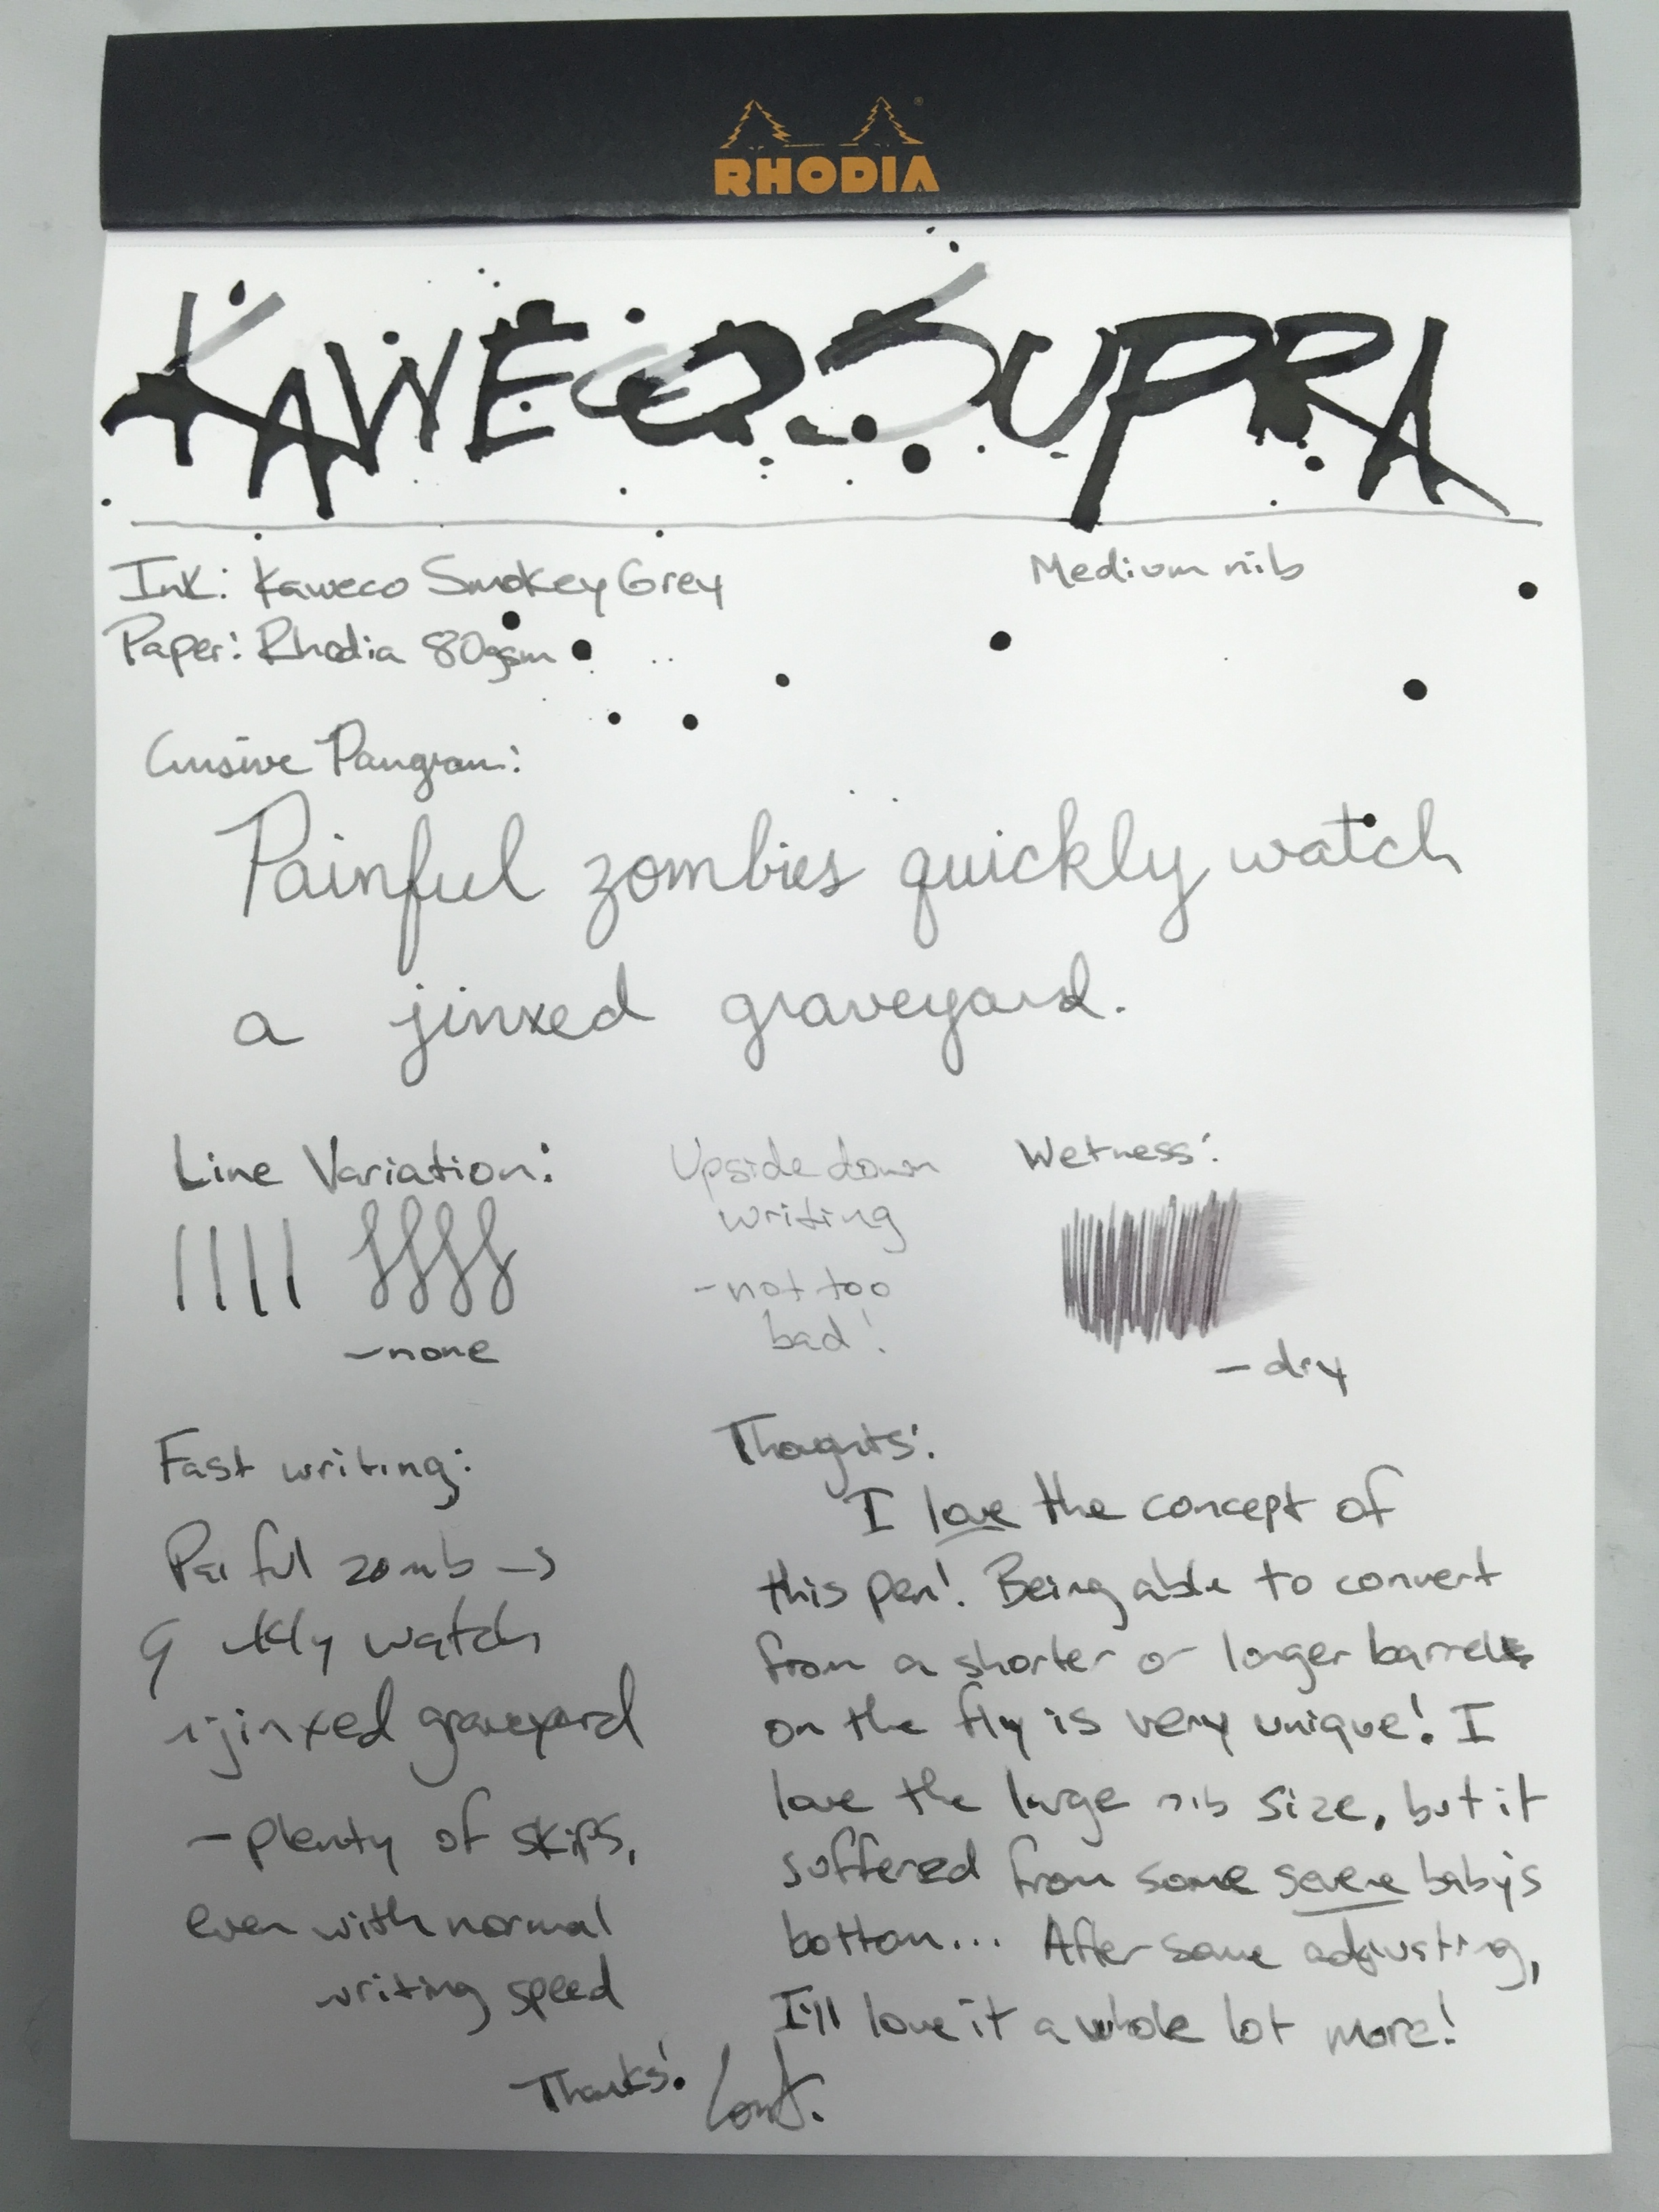 RHODIA
KAWECO SUPRA
Ink: Kaweco Smokey Grey
Medium nib
Paper: Rhodia 80gsm
Cursive Pangram:
Painful zombies quickly watch
a jinxed graveyard.
Line Variation:
-none
Upside down
writing
-not too
bad!
Wetness:
-dry
Fast writing:
Paiful zomb
watch
jinxed graveyard
-plenty of skips,
even with normal
writing speed
Thoghts:
I love the concept of
this pen! Being able to convert
from a shorter or longer barrel
on the fly is very unique! I
love the large nib size, but it
suffered from some severe baby's
bottom... After some adjusting,
I'll love it a whole lot more!
Thanks!